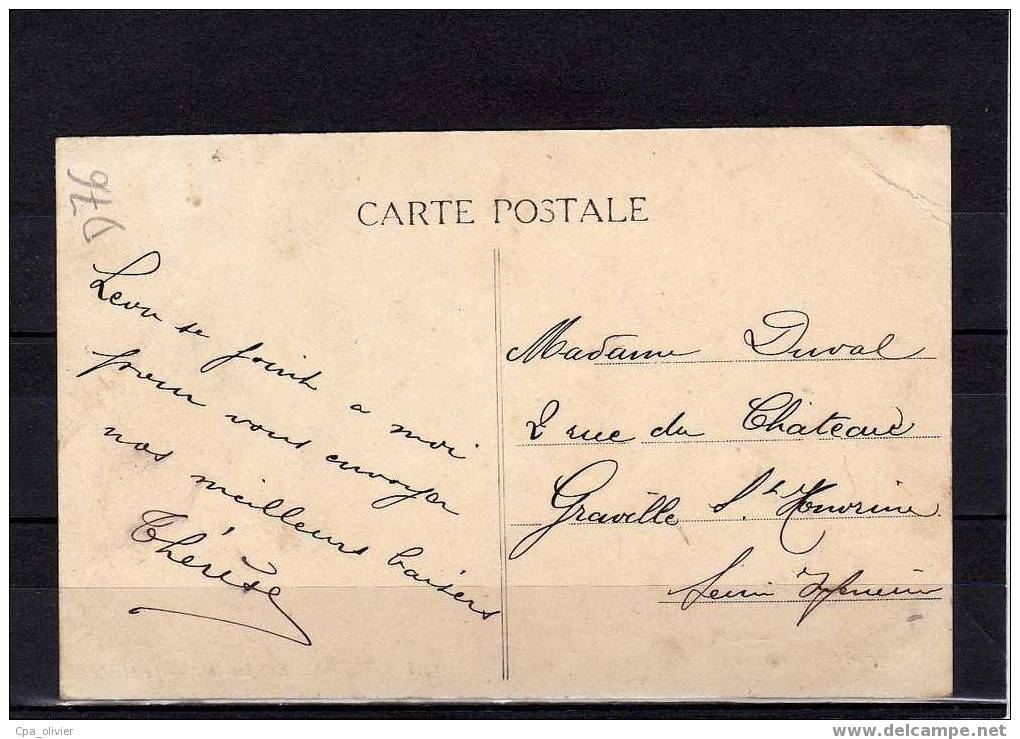 D76
CARTE POSTALE
Leon se joint a moi
pour vous envoyer
nos meilleurs baisers
Thérèse
Madame Duval
2 rue du Chateau
Graville St Honorine
Seine Inférieure
Cpa_olivier
www.delcampe.net